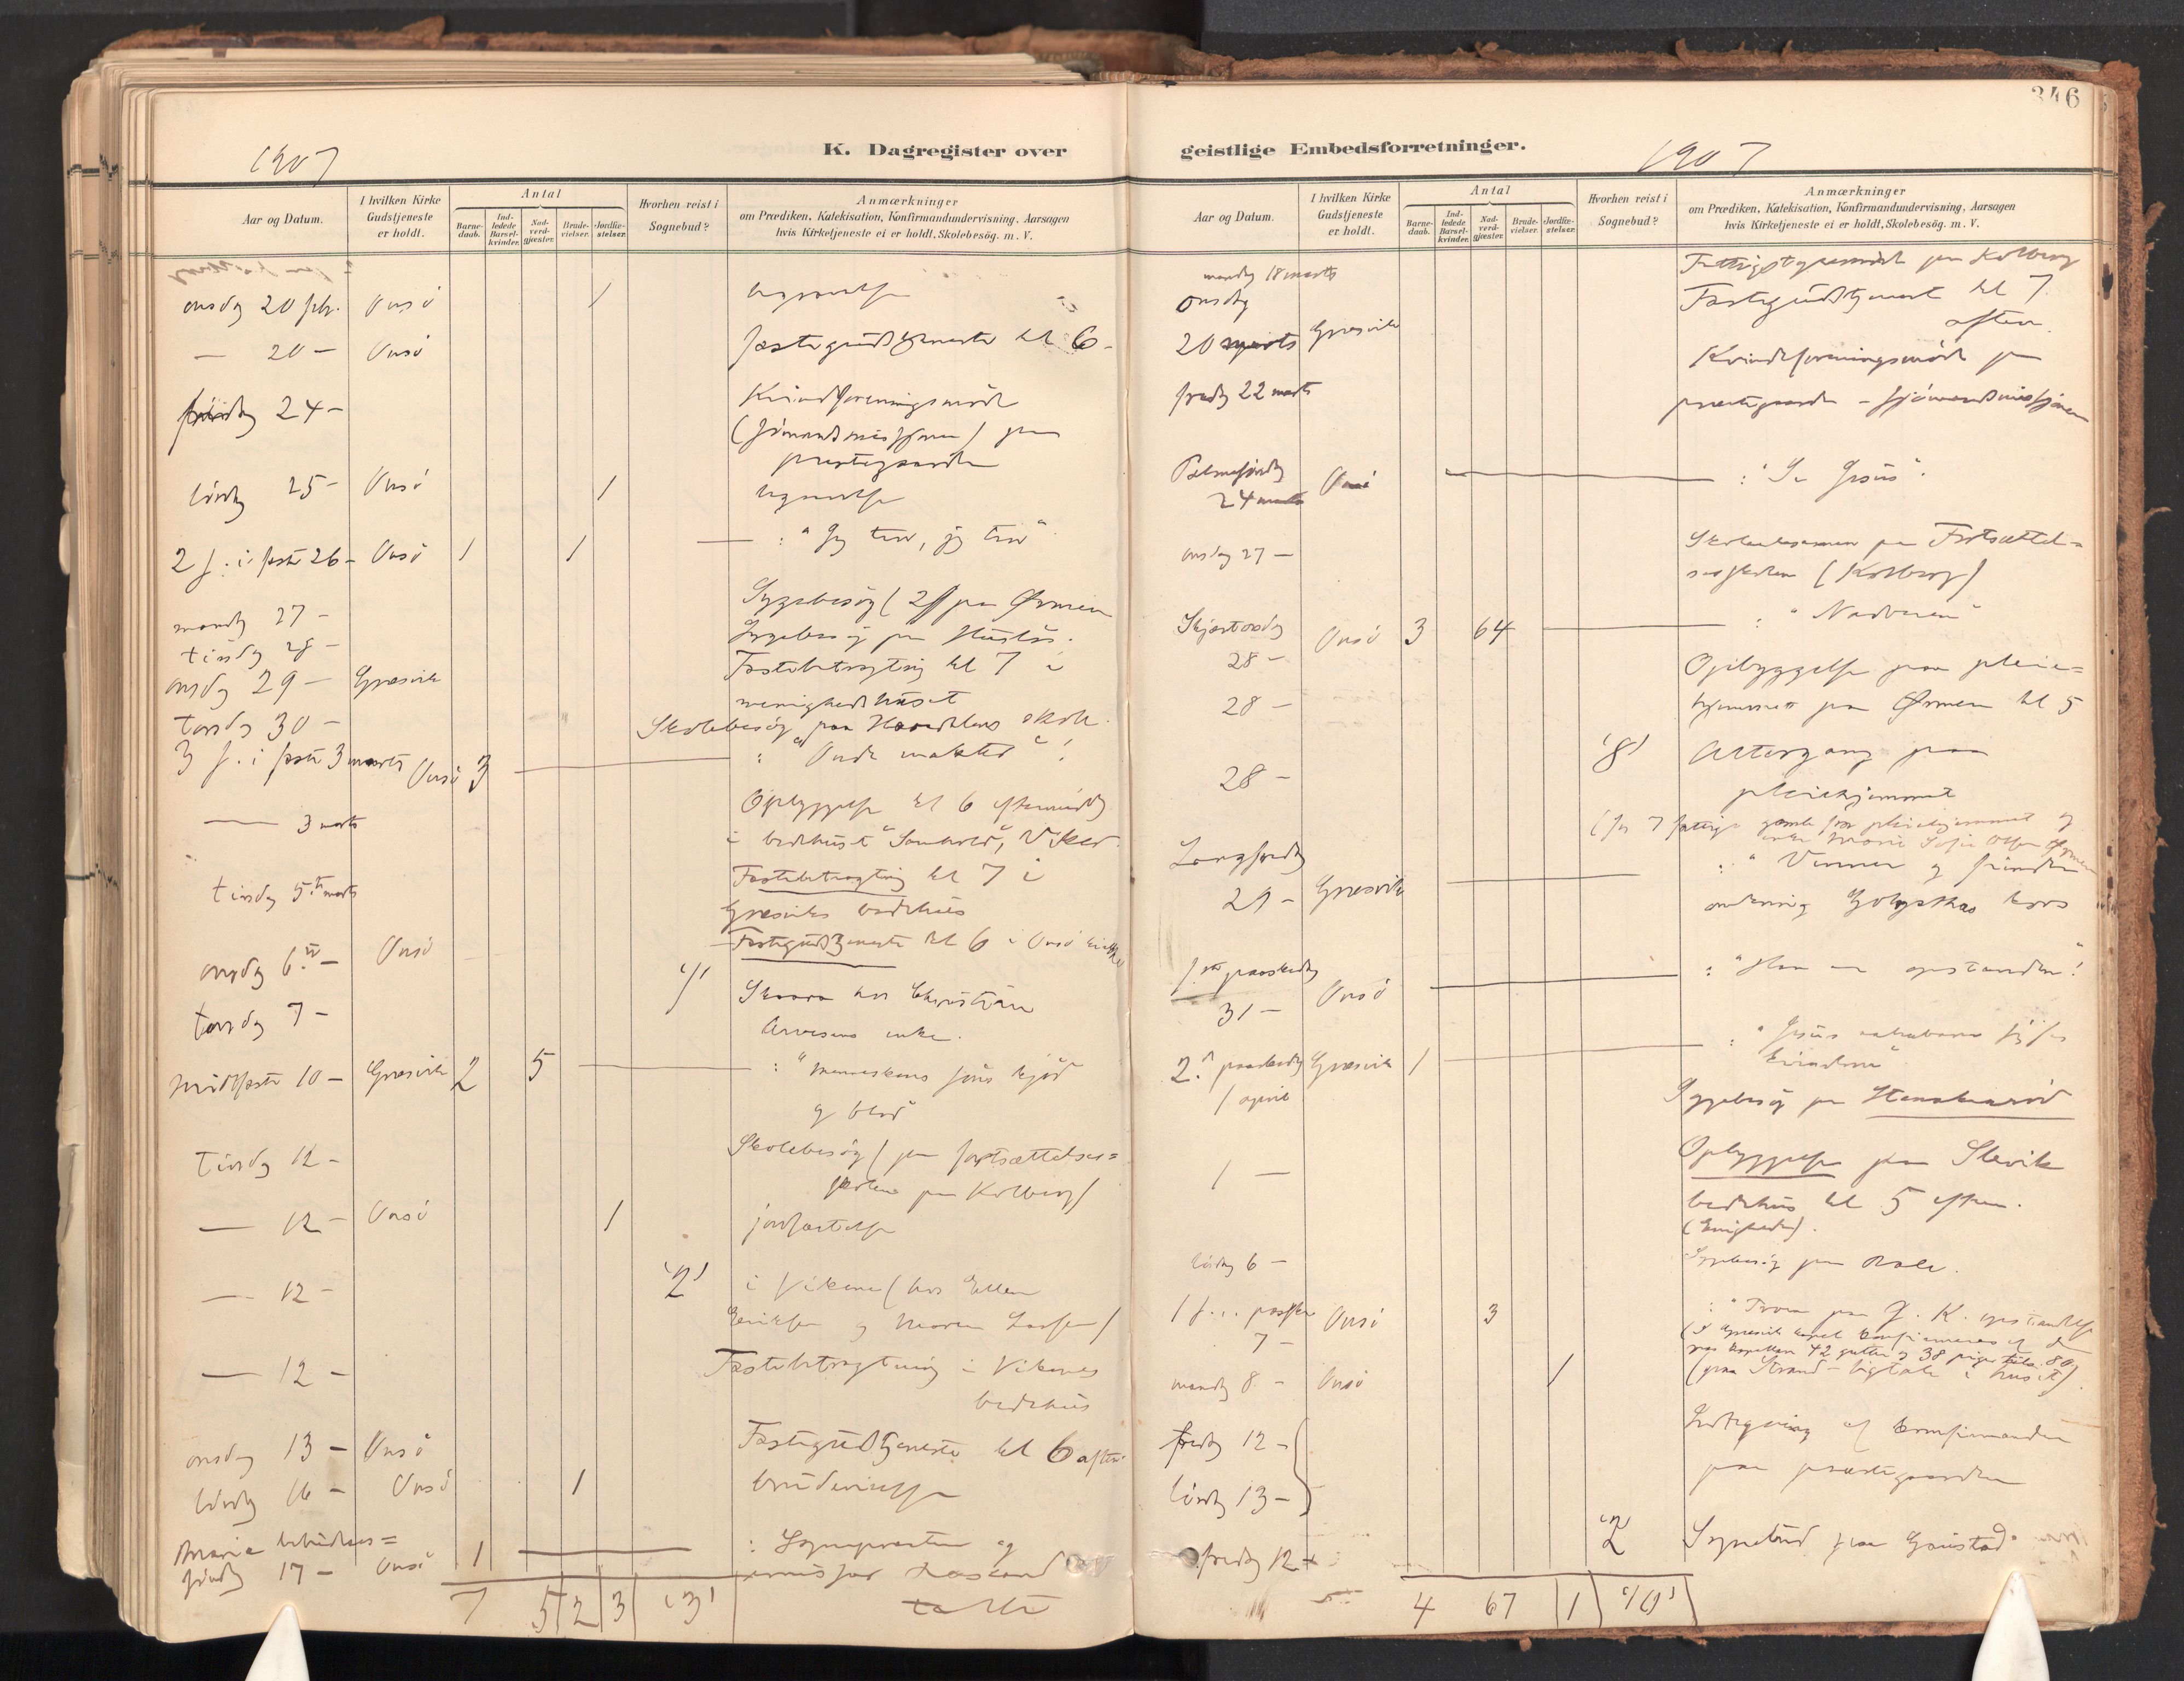 346
1907
K. Dagregister over
Aar og Datum.
I hvilken Kirke Gudstjeneste er holdt.
Antal
Barne-daab.
Ind-ledede Barsel-kvinder.
Nad-verd-gjæster.
Brude-vielser.
Jordfæ-stelser.
Hvorhen reist i Sognebud?
Anmærkninger
om Prædiken, Katekisation, Konfirmandundervisning, Aarsagen
hvis Kirketjeneste ei er holdt, Skolebesøg. m. V.
onsdag 20 feb. Onsö 1
— 20 — Onsö fastegudstjeneste kl 6
24 — Kvindeforeningsmöde
(sjömandsmissionen) paa
prestegaarden
lördag 25 — Onsö 1
2 s. i faste 26 — Onsö 1 1 — : "Jeg tror, jeg tror"
mandag 27 — Sygebesög (2) paa Ørmen
tirsdag 28 — Sygebesög paa
onsdag 29 — Gresvik Fastebetragtning kl 7 i
menighedshuset
torsdag 30 — Skolebesög paa skole
3 s. i faste 3 marts Onsö 3 — : "Onde makter"
— 3 marts Opbyggelse kl 6 eftermiddag
i bedehuset "Samhold", Viker
tirsdag 5te marts Fastebetragtning kl 7 i
Gresviks bedehus
onsdag 6te — Onsö Fastegudstjeneste kl 6 i Onsö kirke
torsdag 7 — "1" Skaara hos Christian
Arvesens enke.
Midtfaste 10 — Gresvik 2 5 — : "Menneskens söns kjöd
og blod"
Tirsdag 12 — Skolebesög (paa fortsættelses=
skolen paa Kolberg)
— 12 — Onsö 1 jordfæstelse
— 12 — "2" i Vikene (hos Ellen
Eriksen og Maren Larsen)
— 12 — Fastebetragtning i Vikenes
bedehus
onsdag 13 — Onsö Fastegudstjeneste kl 6 aften
lördag 16 — Onsö 1 brudevielse
Maria bebudelses=
söndag 17 — Onsö 1 — : Sognepresten og
talte
7 5 2 3 "3"
1907
geistlige Embedsforretninger.
Aar og Datum.
I hvilken Kirke Gudstjeneste er holdt.
Antal
Barne-daab.
Ind-ledede Barsel-kvinder.
Nad-verd-gjæster.
Brude-vielser.
Jordfæ-stelser.
Hvorhen reist i Sognebud?
Anmærkninger
om Prædiken, Katekisation, Konfirmandundervisning, Aarsagen
hvis Kirketjeneste ei er holdt, Skolebesøg. m. V.
mandag 18 marts paa Kolberg
onsdag
20 marts Gresvik Fastegudstjeneste kl 7
aften.
fredag 22 marts Kvindeforeningsmöde paa
prestegaarden — sjömandsmissjonen
Palmesöndag
24 marts Onsö — : "Se Jesus".
onsdag 27 — Skoleeksamen paa Fortsættel=
sesskolen (Kolberg)
Skjærtorsdag
28 — Onsö 3 64 — : "Nadveren"
28 — Opbyggelse paa pleie=
hjemmet paa Ørmen kl 5
28 — "8" Altergang paa
pleiehjemmet
(for 7 fattige gamle paa pleiehjemmet og
enke Marie Sofie Olsen Ørmen
Langfredag
29 — Gresvik — : "Venner og fiender
omkring Golgathas kors
1ste paaskedag
31 — Onsö — : "Han er opstanden!"
2den paaskedag
1 april Gresvik 1 — : "Jesus aabenbarer sig for
kvinderne"
Sygebesög paa
1 — Opbyggelse paa Slevik
bedehus kl 5 eftm.
lördag 6 — Sygebesög paa
1 s. e. paaske
7 — Onsö 3 : "Troen paa J. K. opstandelse
(I Gresvik kapel konfirmeres af
kapellan 42 gutter og 38 piger 80)
mandag 8 — Onsö 1 (paa Strand — ligtale i huset)
fredag 12 —
lördag 13 — Indtegning af konfirmander
paa prestegaarden
fredag 12 — "2" Sognebud paa
4 67 1 "10"